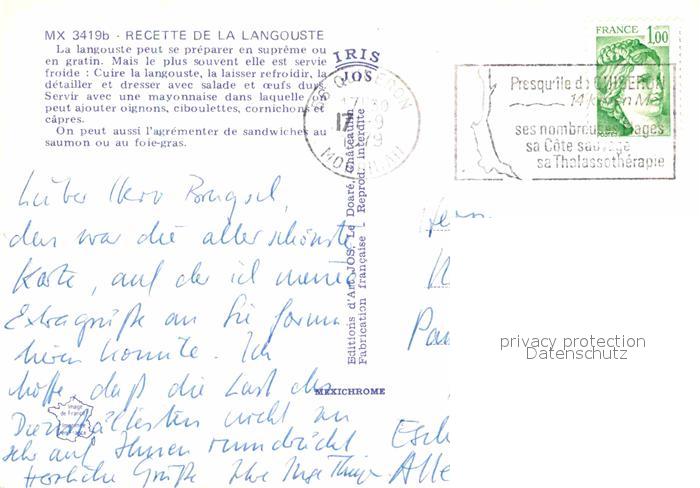 MX 3419b - RECETTE DE LA LANGOUSTE
La langouste peut se préparer en suprême ou
en gratin. Mais le plus souvent elle est servie
froide : Cuire la langouste, la laisser refroidir, la
détailler et dresser avec salade et œufs durs
Servir avec une mayonnaise dans laquelle
peut ajouter oignons, ciboulettes, cornichons
câpres.
On peut aussi l'agrémenter de sandwiches au
saumon ou au foie-gras.
IRIS
JOS
56 QUIBERON
17 H 30
17 -9
MORBIHAN
FRANCE
1,00
Presqu'île de QUIBERON
14 km en Mer
ses nombreuses plages
sa Côte sauvage
sa Thalassothérapie
Editions d'Art JOS, Le Doaré, Châteaulin
Fabrication française - Reprod. interdite
MEXICHROME
image
de France
Lieber Herr
das war die allerschönste
Karte, auf der ich meine
Extragrüße an Sie formu
lieren konnte. Ich
hoffe, daß die Last des
Dienstältesten nicht zu
sehr auf Ihnen
Herzliche Grüße Ihre Inge
Herrn
Esch
Alle
privacy protection
Datenschutz